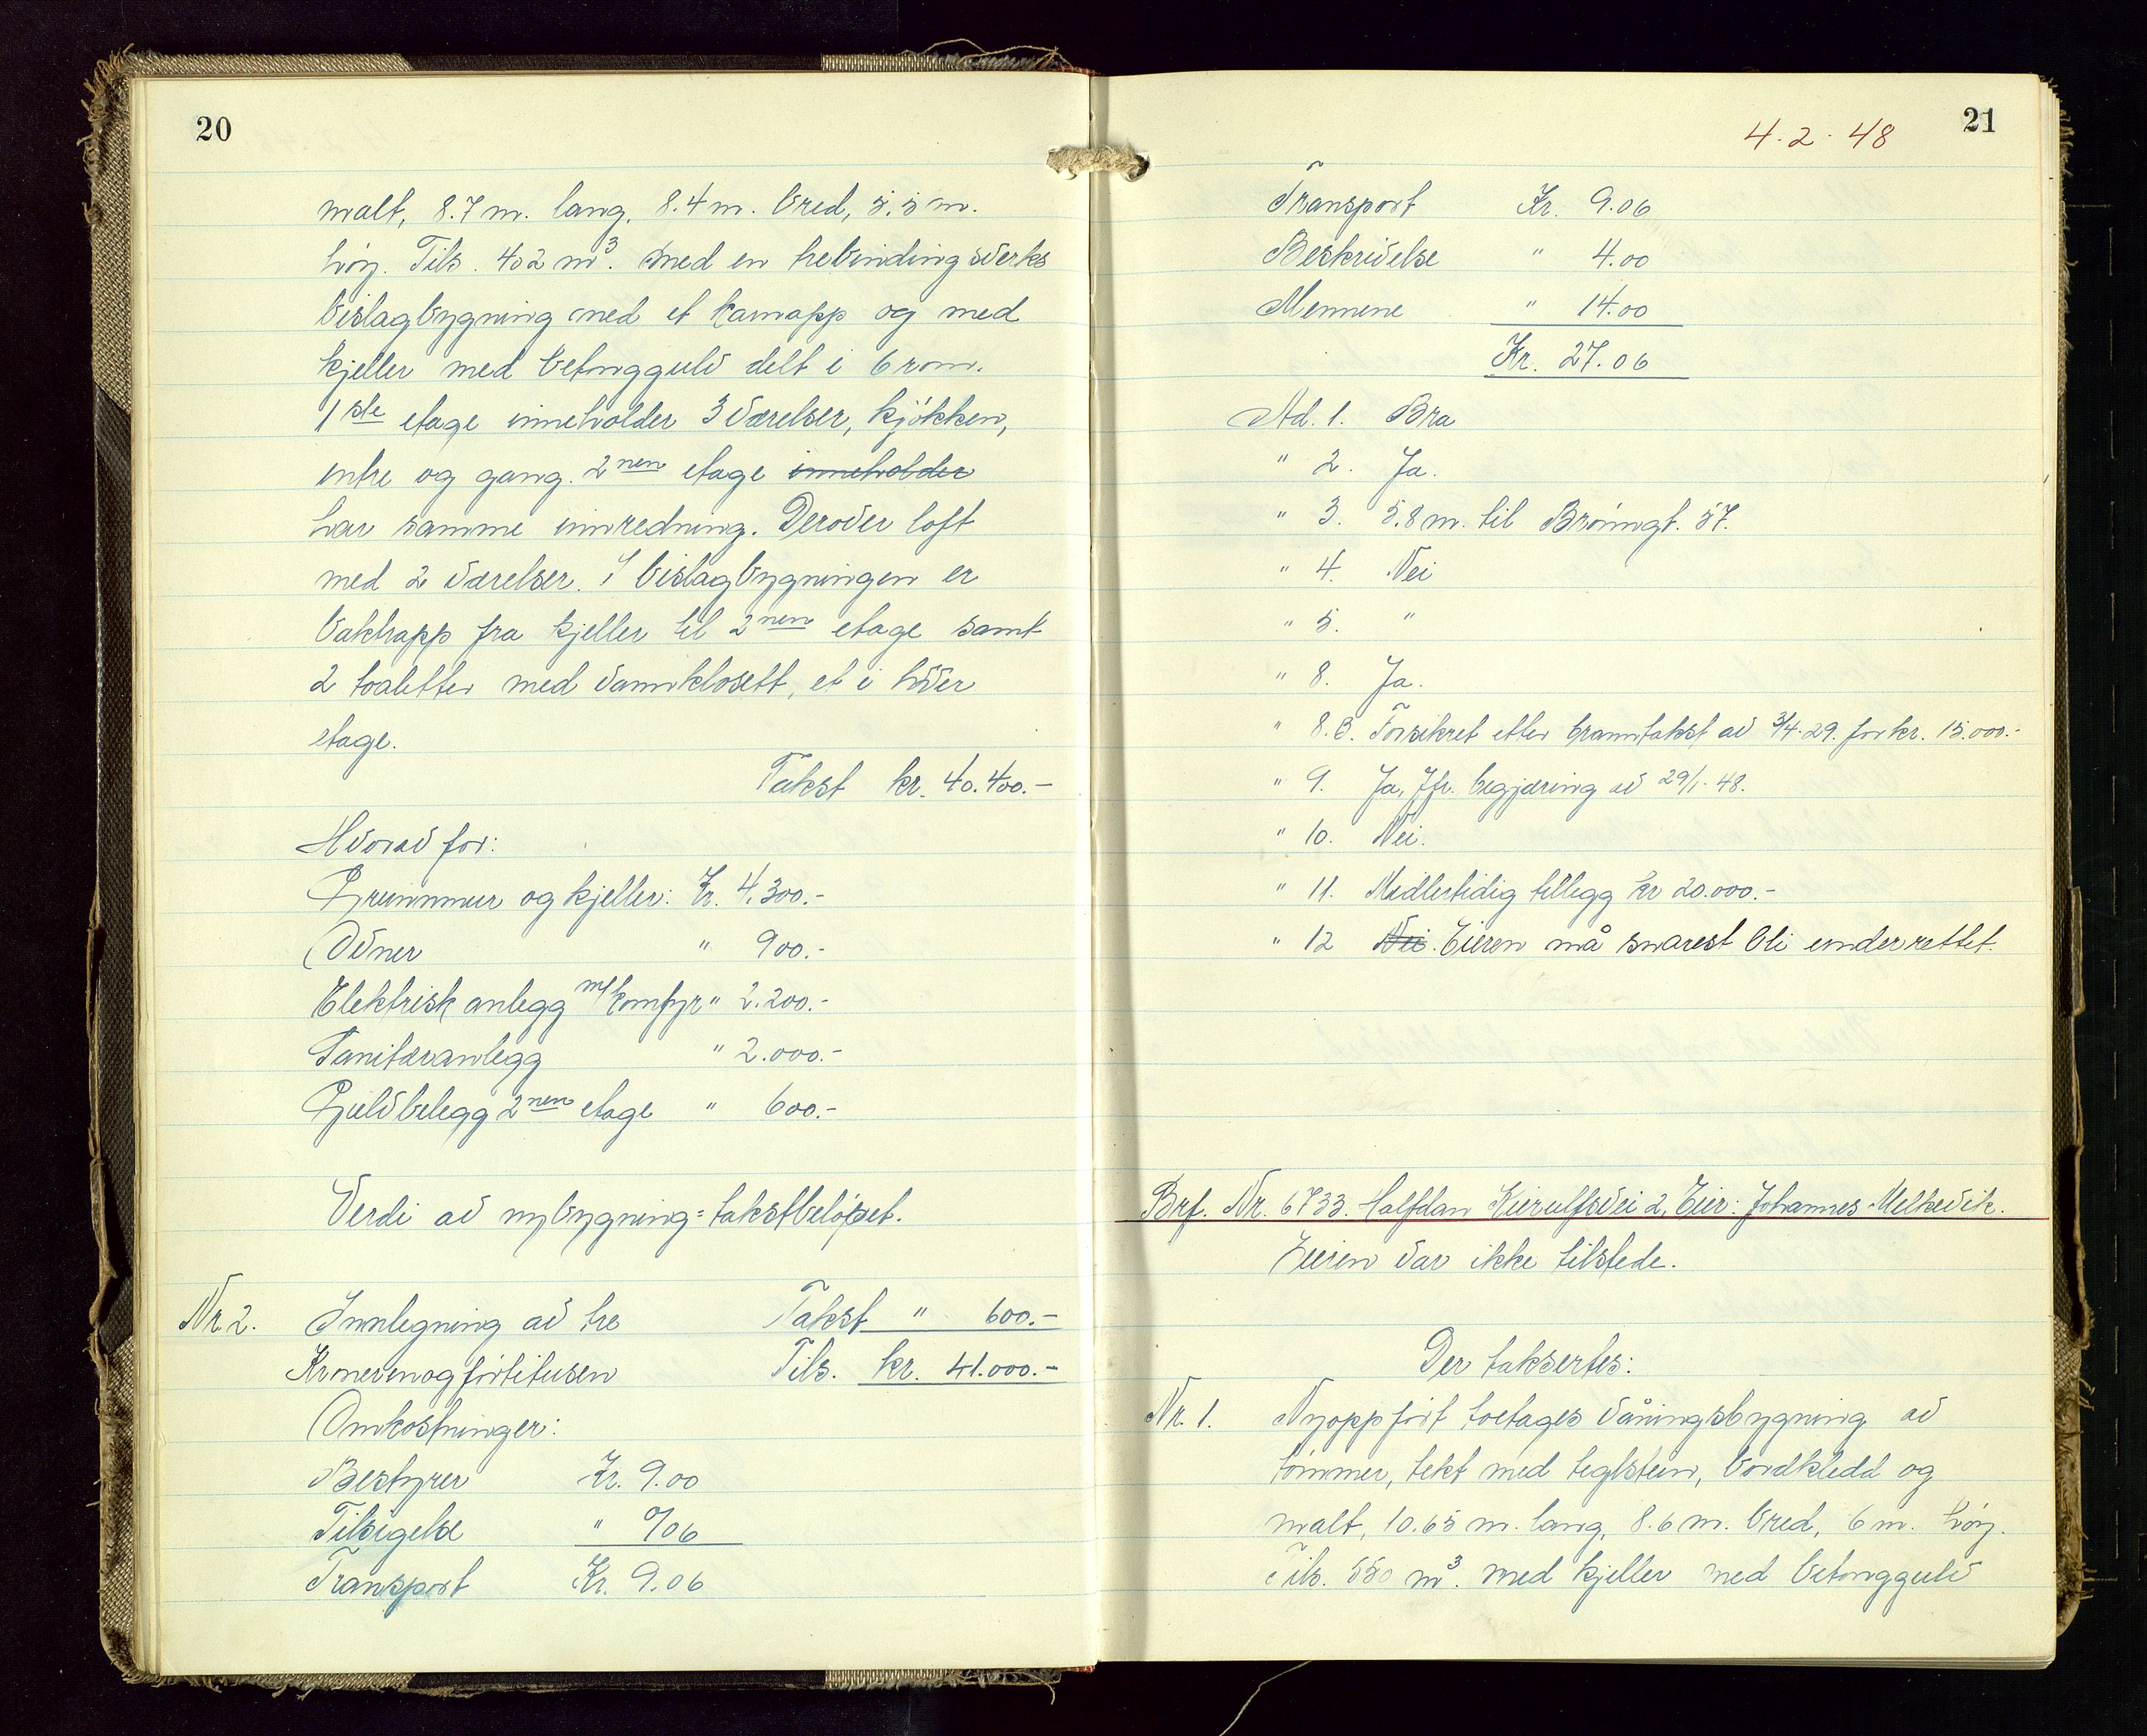 20
malt, 8.7 m. lang, 8.4 m. bred, 5.5 m.
höy. Tils. 402 m³. Med en trebindingsverks
bislagbygning med et karnapp og med
kjeller med betonggulv delt i 6 rom.
1ste etage inneholder 3 værelser, kjökken,
entre og gang. 2nen etage inneholder
har samme innredning. Derover loft
med 2 værelser. I bislagbygningen er
baktrapp fra kjeller til 2nen etage samt
2 toaletter med vannklosett, et i hver
etage.
Takst kr. 40.400.-
Hvorav for:
Grunnmur og kjeller: Kr. 4.300.-
Ovner " 900.-
Elektrisk anlegg m/komfyr " 2.200.-
Sanitæranlegg " 2.000.-
Gulvbelegg 2nen etage " 600.-
Verdi av nybygning = takstbelöpet.
Nr. 2. Innlegning av tre Takst " 600.-
Kronerenogförtitusen Tils. kr. 41.000.-
Omkostninger:
Bestyrer Kr. 9.00
Tilsigelse " 0/06
Transport Kr. 9.06
4.2.48 21
Transport Kr. 9.06
Beskrivelse " 4.00
Mennene " 14.00
Kr. 27.06
Ad. 1. Bra
" 2. Ja.
" 3. 5.8 m. til Brönngt. 57.
" 4. Nei
" 5. "
" 8. Ja.
" 8.B. Forsikret etter branntakst av 3/4-29. for kr. 15.000.-
" 9. Ja, Jfr. begjæring av 29/1-48.
" 10. Nei.
" 11. Midlertidig tillegg kr 20.000.-
" 12 Nei. Eieren må snarest bli underrettet.
Brf. Nr. 6733. Halfdan Kierulfsvei 2, Eier: Johannes Melkevik.
Eieren var ikke tilstede.
Der taksertes:
Nr. 1. Nyoppfört toetages våningsbygning av
tömmer, tekt med teglstein, bordkledd og
malt, 10.65 m. lang, 8.6 m. bred, 6 m. höy.
Tils. 550 m³. Med kjeller med betonggulv